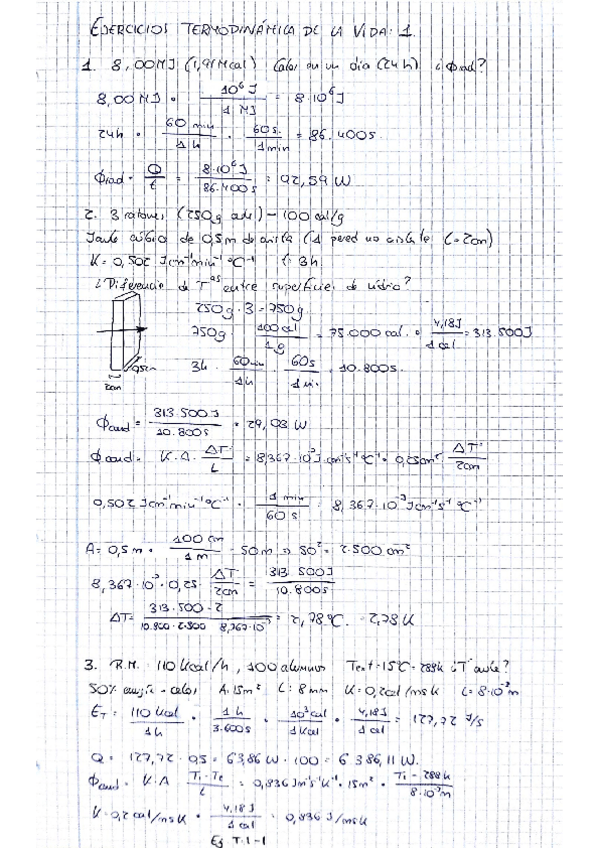 EJERCICIOS TERMODINÁMICA DE LA VIDA: 1.
1. 8,00MJ (1,91Mcal) Calor en un día (24h) ¿Φrad?
8,00MJ · 10⁶J / 1 MJ = 8·10⁶J
24h · 60 min / 1 h · 60s. / 1min = 86.400s.
Φrad = Q / t = 8·10⁶J / 86.400s = 92,59 W
2. 3 ratones (250g cada) - 100 cal/g
Jaula cúbica de 0,5m de arista (1 pared no aislante L=2cm)
K = 0,502 Jcm⁻¹min⁻¹ °C⁻¹ t: 3h
¿Diferencia de Tᵃˢ entre superficies de vidrio?
250g · 3 = 750g.
750g · 100 cal / 1g = 75.000 cal. · 4,18J / 1 cal = 313.500J
0,5m
2cm
3h · 60min / 1h · 60s / 1 min = 10.800s.
Φcond = 313.500J / 10.800s = 29,03 W
Φcond = K·A· ΔT / L = 8,367·10⁻³J·cm⁻¹s⁻¹°C⁻¹· 0,25m² · ΔT / 2cm
0,502 Jcm⁻¹min⁻¹°C⁻¹ · 1 min / 60 s = 8,367·10⁻³Jcm⁻¹s⁻¹ °C⁻¹
A= 0,5m · 100 cm / 1 m = 50m ⇒ 50² = 2.500 cm²
8,367·10⁻³·0,25· ΔT / 2cm = 313.500J / 10.800s
ΔT= 313.500·2 / 10.800·2.500 8,367·10⁻³ = 2,78°C. = 2,78 K
3. R.M. 110 Kcal/h, 100 alumnos Text=15°C - 288K ¿T aula?
50% energía → calor A: 15m² L: 8mm K=0,2cal/msK L=8·10⁻³m
ET = 110 Kcal / 1h · 1 h / 3.600s · 10³cal / 1Kcal · 4,18J / 1 cal = 127,72 J/s
Q = 127,72 · 0,5 = 63,86 W · 100 = 6 386,11 W.
Φcond = K·A Ti-Te / L = 0,836Jm⁻¹s⁻¹K⁻¹· 15m² · Ti - 288K / 8·10⁻³m
K=0,2 cal/msK · 4,18J / 1 cal = 0,836 J/msK
Ej T.1-1